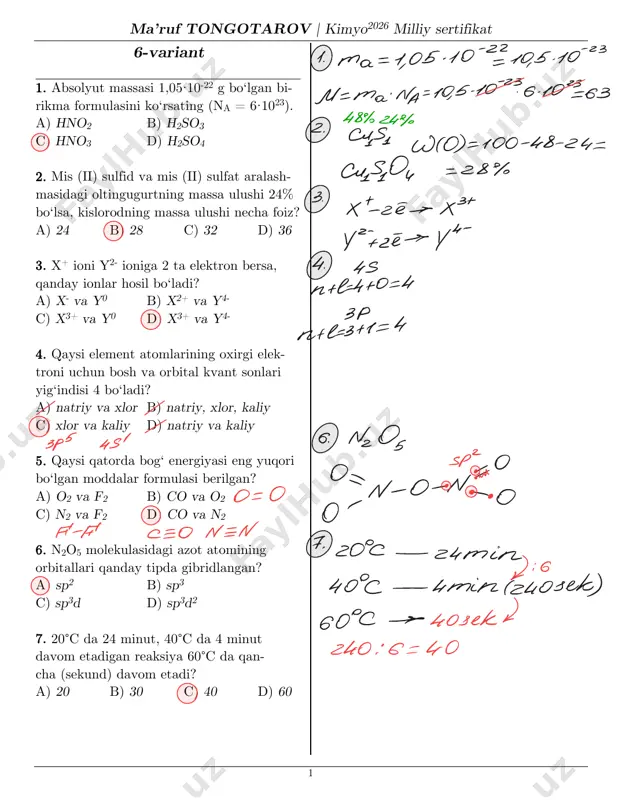 Ma'ruf TONGOTAROV | Kimyo²⁰²⁶ Milliy sertifikat
6-variant
1. Absolyut massasi 1,05·10⁻²² g bo‘lgan bi-
rikma formulasini ko‘rsating (N_A = 6·10²³).
A) HNO₂ B) H₂SO₃
C) HNO₃ D) H₂SO₄
2. Mis (II) sulfid va mis (II) sulfat aralash-
masidagi oltingugurtning massa ulushi 24%
bo‘lsa, kislorodning massa ulushi necha foiz?
A) 24 B) 28 C) 32 D) 36
3. X⁺ ioni Y²⁻ ioniga 2 ta elektron bersa,
qanday ionlar hosil bo‘ladi?
A) X⁻ va Y⁰ B) X²⁺ va Y⁴⁻
C) X³⁺ va Y⁰ D) X³⁺ va Y⁴⁻
4. Qaysi element atomlarining oxirgi elek-
troni uchun bosh va orbital kvant sonlari
yig‘indisi 4 bo‘ladi?
A) natriy va xlor B) natriy, xlor, kaliy
C) xlor va kaliy D) natriy va kaliy
3p⁵ 4S¹
5. Qaysi qatorda bog‘ energiyasi eng yuqori
bo‘lgan moddalar formulasi berilgan?
A) O₂ va F₂ B) CO va O₂ O=O
C) N₂ va F₂ D) CO va N₂
F–F C≡O N≡N
6. N₂O₅ molekulasidagi azot atomining
orbitallari qanday tipda gibridlangan?
A) sp² B) sp³
C) sp³d D) sp³d²
7. 20°C da 24 minut, 40°C da 4 minut
davom etadigan reaksiya 60°C da qan-
cha (sekund) davom etadi?
A) 20 B) 30 C) 40 D) 60
1. ma=1,05·10⁻²²=10,5·10⁻²³
M=ma·N_A=10,5·10⁻²³·6·10²³=63
48% 24%
2. Cu₁S₁ W(O)=100-48-24=
Cu₁S₁O₄ =28%
3. X⁺-2ē→X³⁺
Y²⁻+2ē→Y⁴⁻
4. 4S
n+l=4+0=4
3P
n+l=3+1=4
6. N₂O₅
sp²
O O
N–O–N
O O
7. 20°C — 24min
:6
40°C — 4min(240sek)
60°C → 40sek
240:6=40
1
FaylHub.uz
FaylHub.uz
FaylHub.uz
b.uz
uz
uz